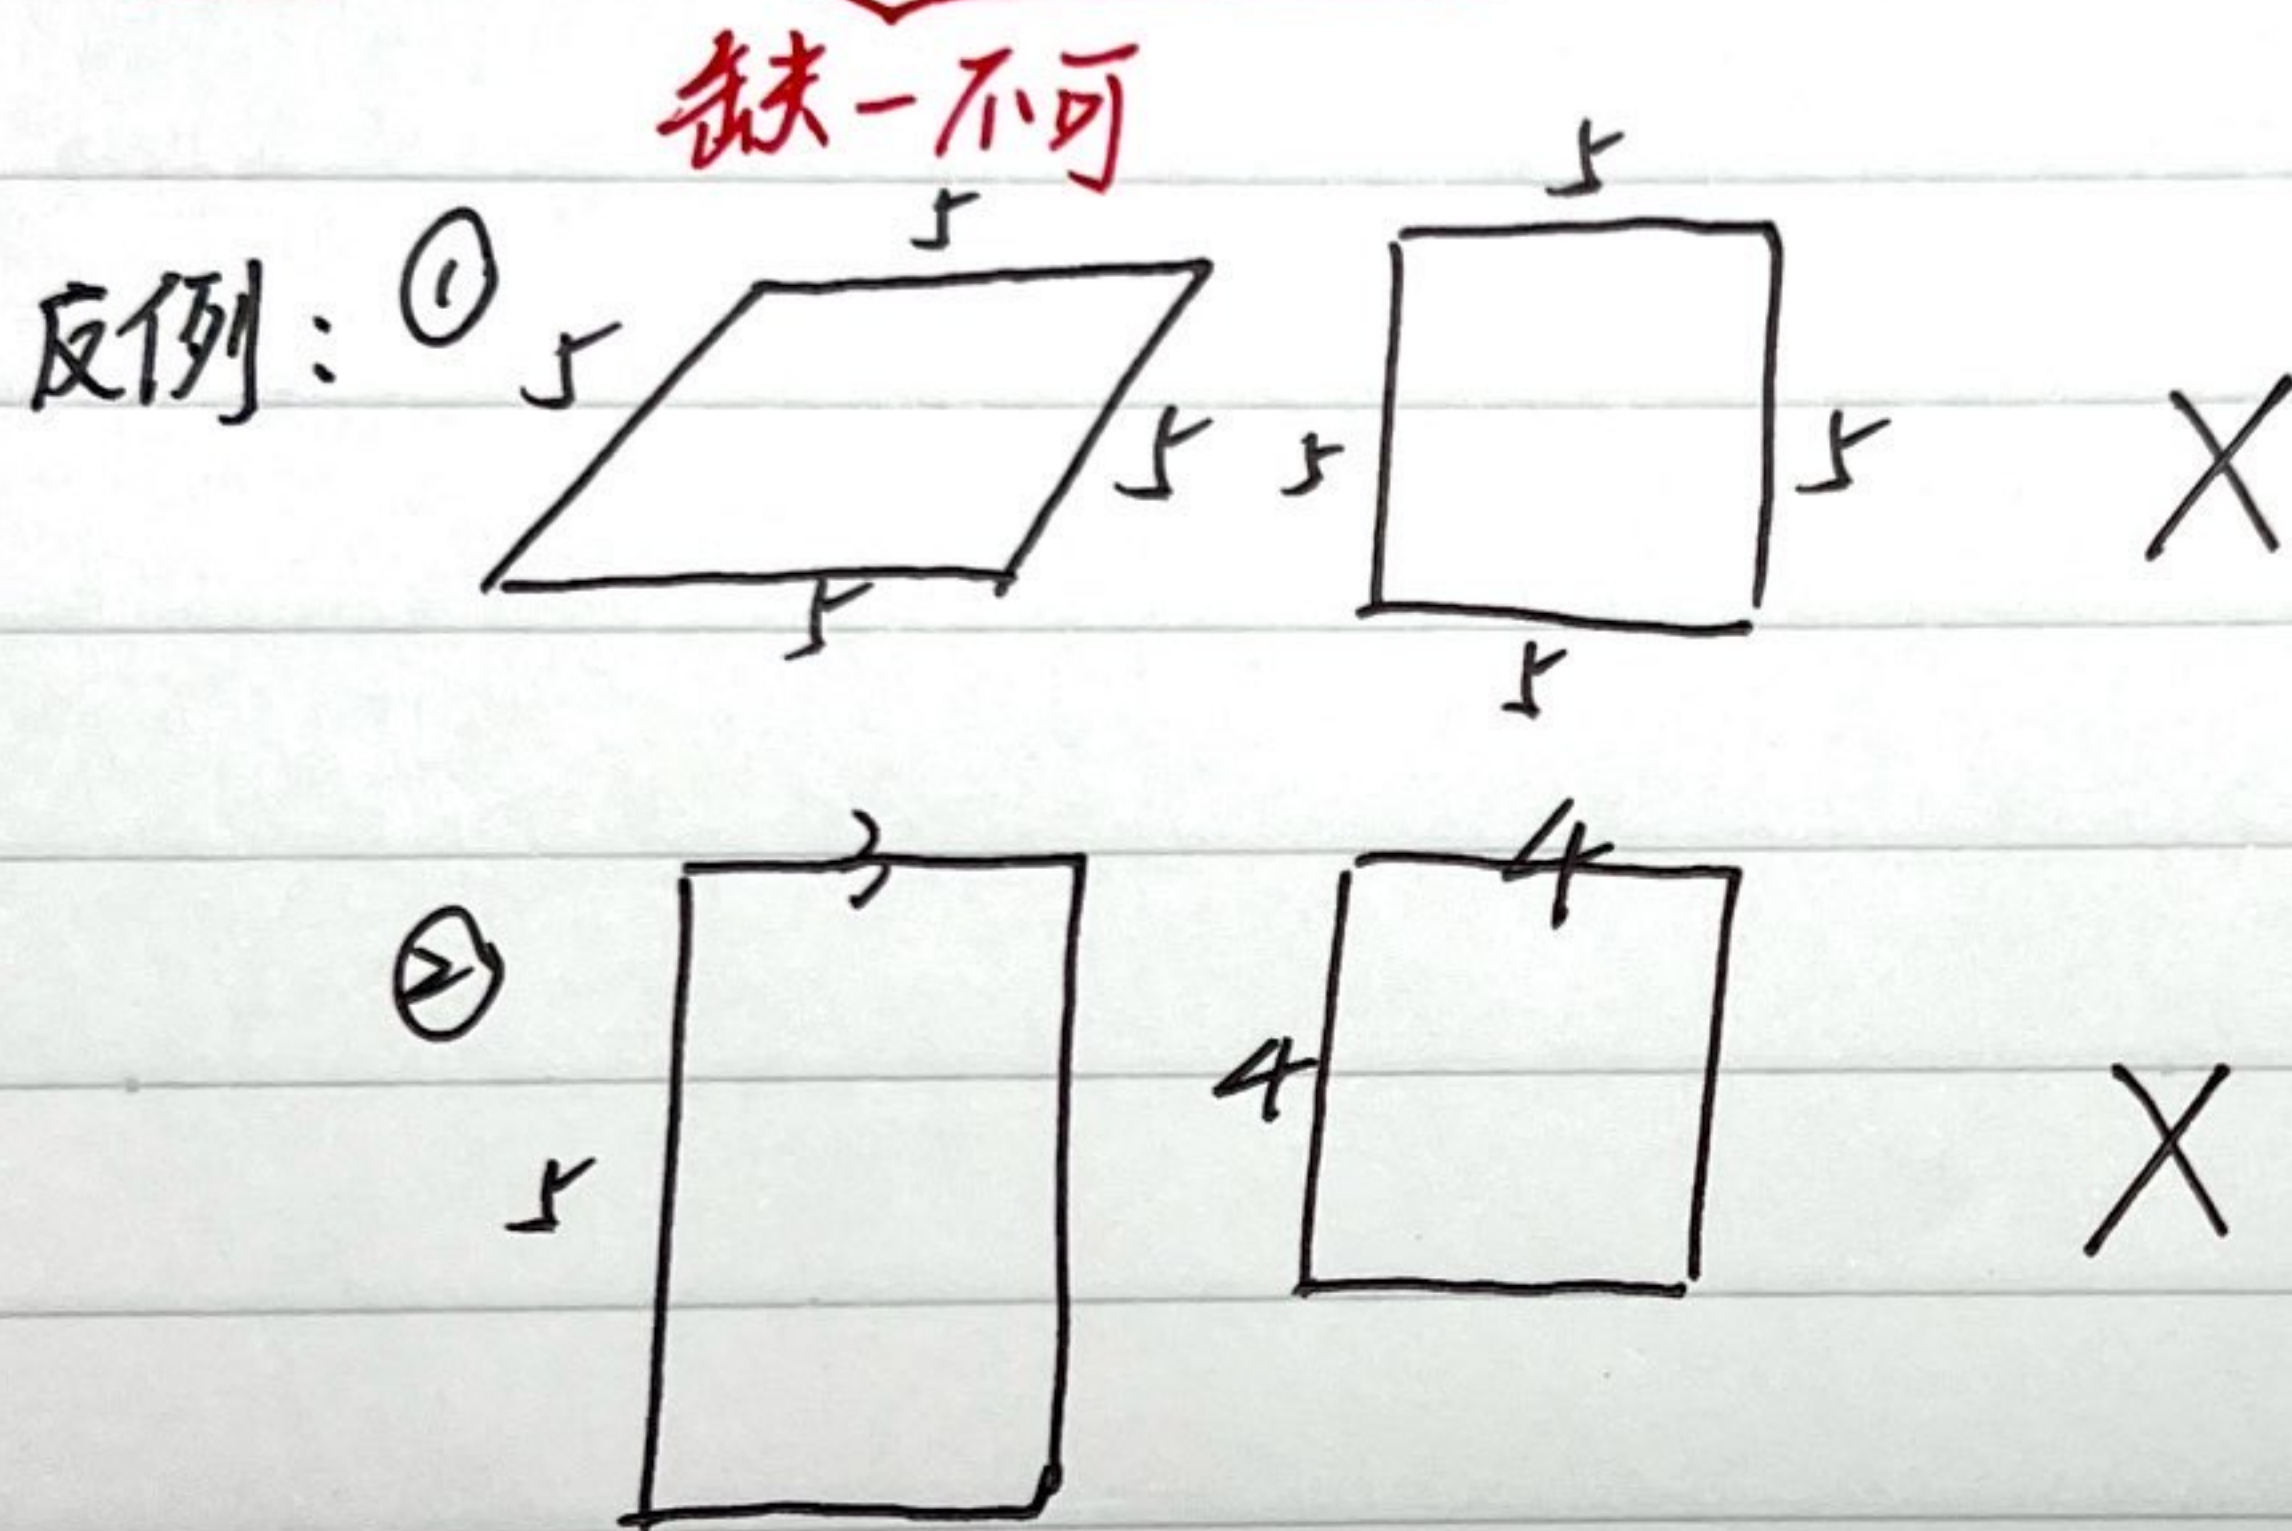 缺一不可
反例: ① 5 5 5 5 5 5 5 5 X
② 3 5 4 4 X